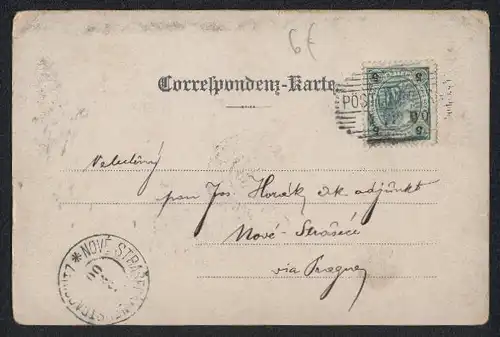 6€
Correspondenz-Karte
5 5
POST
00
5 5
Veluctěný
pan Jos. Horák, zk adjunkt
Nové-Strašecí
via Prague
* NOVÉ STRAŠECÍ
00